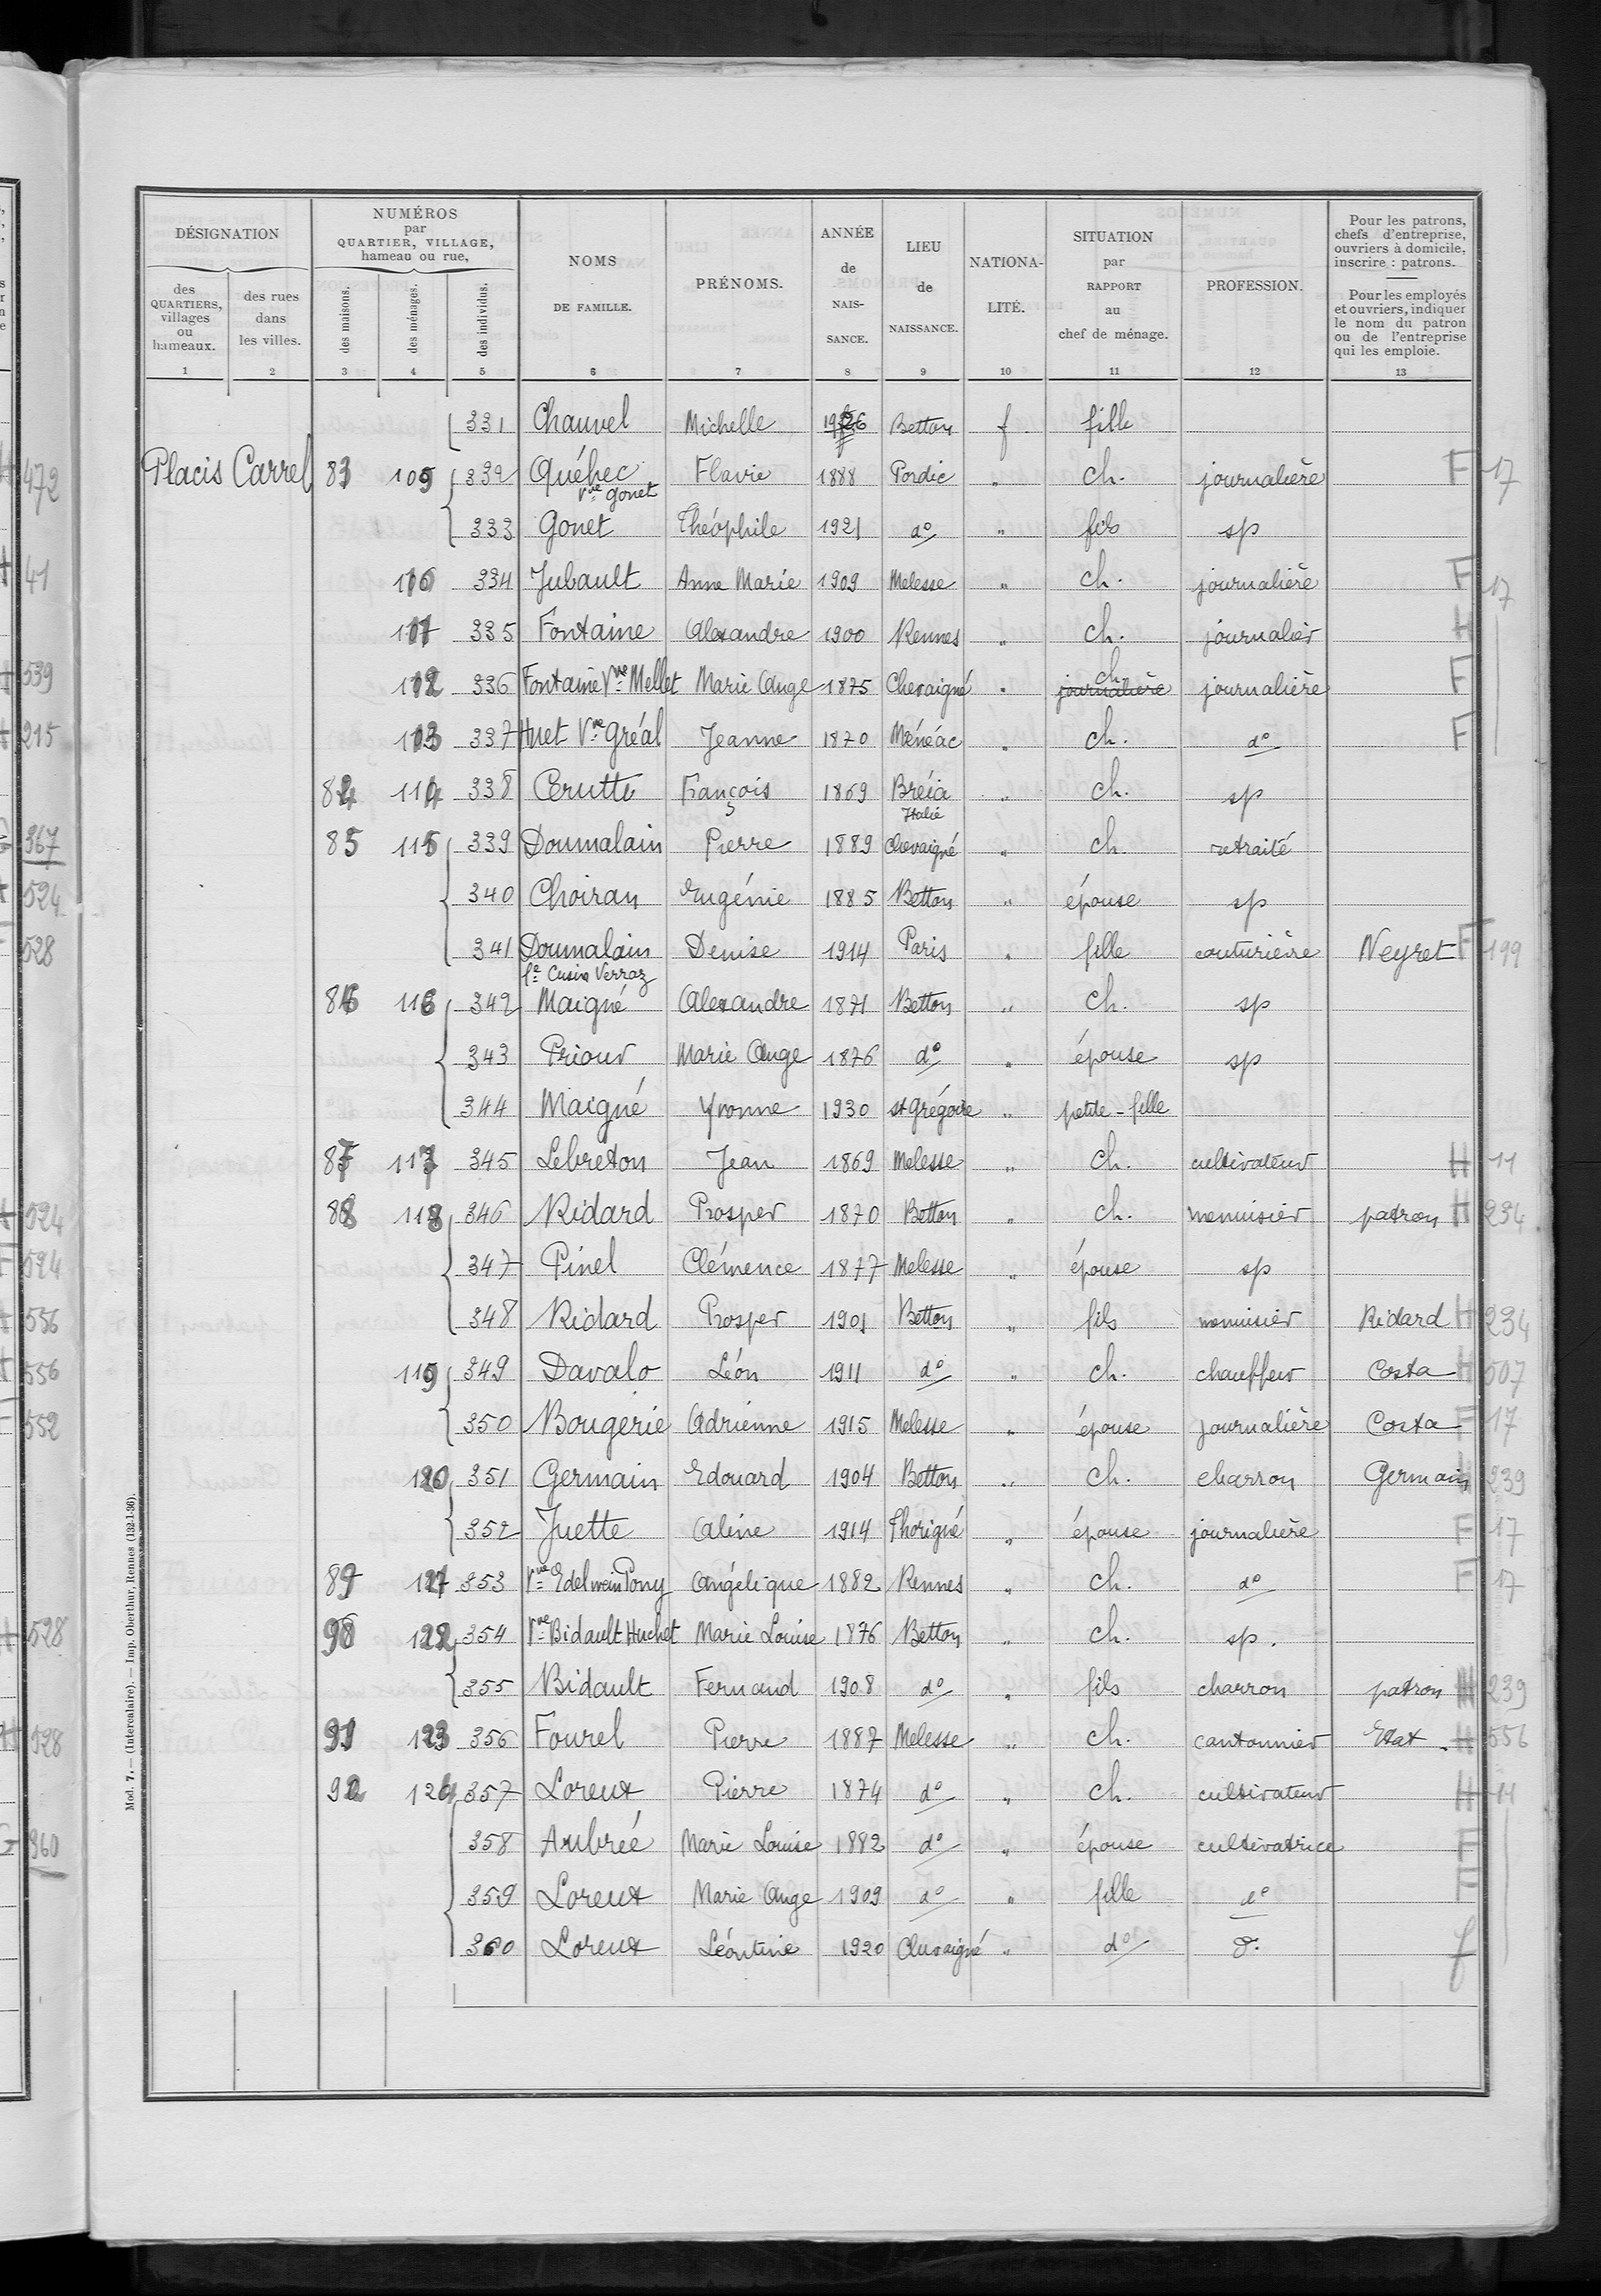 DÉSIGNATION
des QUARTIERS, villages ou hameaux.
des rues dans les villes.
NUMÉROS par QUARTIER, VILLAGE, hameau ou rue,
des maisons.
des ménages.
des individus.
NOMS DE FAMILLE.
PRÉNOMS.
ANNÉE de NAIS-SANCE.
LIEU de NAISSANCE.
NATIONA-LITÉ.
SITUATION par RAPPORT au chef de ménage.
PROFESSION.
Pour les patrons, chefs d'entreprise, ouvriers à domicile, inscrire : patrons.
Pour les employés et ouvriers, indiquer le nom du patron ou de l'entreprise qui les emploie.
1 2 3 4 5 6 7 8 9 10 11 12 13
331 Chauvel Michelle Betton f. fille
Placis Carrel 83 109 332 Québec Vve Gonet Flavie 1888 Pordic " ch. journalière F 17
333 Gonet Théophile 1921 do " fils sp
334 Jubault Anne Marie 1909 Melesse " ch. journalière F 17
335 Fontaine Alexandre 1900 Rennes " ch. journalier H
336 Fontaine Vve Mellet Marie Ange 1875 Chevaigné " journalière ch. journalière F
337 Huet Vve Gréal Jeanne 1870 Ménéac " ch. do F
84 114 338 Cerutte François 1869 Bréia Italie " ch. sp
85 115 339 Doumalain Pierre 1889 Chevaigné " ch. retraité
340 Choiran Eugénie 1885 Betton " épouse sp
341 Doumalain fe Cusin Verraz Denise 1914 Paris " fille couturière Neyret F 199
86 116 342 Maigné Alexandre 1871 Betton " ch. sp
343 Priour Marie Ange 1876 do " épouse sp
344 Maigné Yvonne 1930 St Grégoire " petite-fille
87 117 345 Lebreton Jean 1869 Melesse " ch. cultivateur H 11
88 118 346 Ridard Prosper 1870 Betton " ch. menuisier patron H 234
347 Pinel Clémence 1877 Melesse " épouse sp
348 Ridard Prosper 1901 Betton " fils menuisier Ridard H 234
119 349 Davalo Léon 1911 do " ch. chauffeur Costa H 507
350 Bougerie Adrienne 1915 Melesse " épouse journalière Costa F 17
120 351 Germain Edouard 1904 Betton " ch. charron Germain 239
352 Juette Aline 1914 Thorigné " épouse journalière F 17
89 121 353 Vve Edelwein Pony Angélique 1882 Rennes " ch. do F 17
90 122 354 Vve Bidault Huchet Marie Louise 1876 Betton " ch. sp.
355 Bidault Fernand 1908 do " fils charron patron H 239
91 123 356 Fourel Pierre 1887 Melesse " ch. cantonnier Etat H 556
92 124 357 Loreux Pierre 1874 do " ch. cultivateur H 11
358 Aubrée Marie Louise 1882 do " épouse cultivatrice F
359 Loreux Marie Ange 1909 do " fille do F
360 Loreux Léontine 1920 Chevaigné " do do f
Mod. 7. — (Intercalaire). — Imp. Oberthur, Rennes (132-1-36).
472
41
539
215
367
524
528
524
524
556
556
552
528
528
360